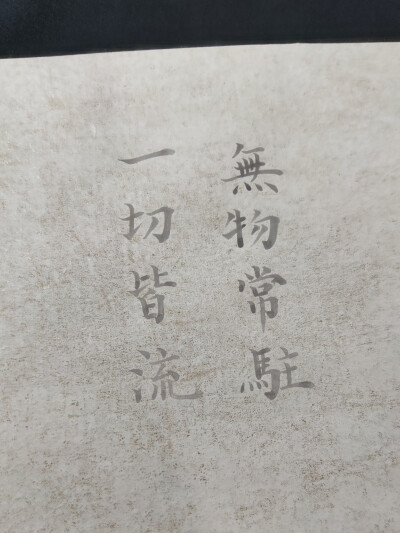 無物常駐
一切皆流